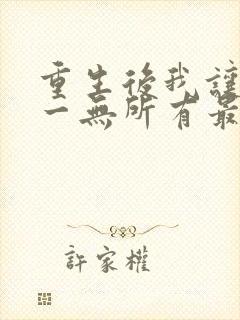 重生後我讓
一無所有最
許家權